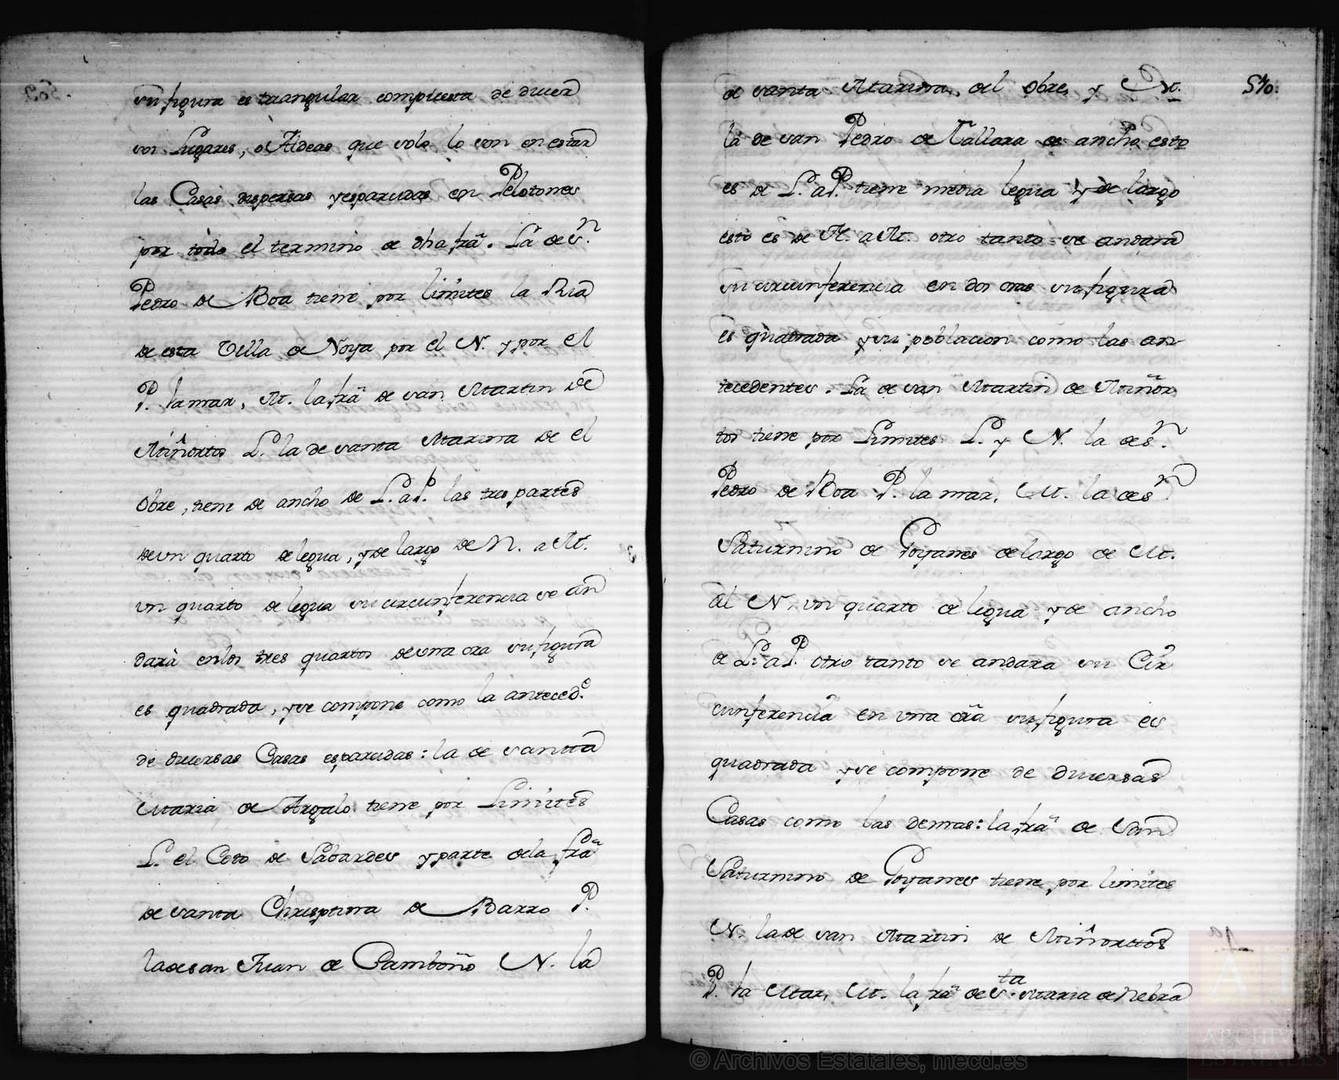 su figura es triangular compuesta de diver
sos Lugares, o Aldeas que solo lo son en estar
las Casas dispersas y esparcidas en Pelotones
por todo el termino de dha frã. Lâ de Sn.
Pedro de Boa tiene por limites la Ria
de esta Villa de Noya por el N. y por el
P. la mar, M. la frã de san Martin de
Miñortos L. la de santa Marina de el
Obre, tiene de ancho de L. a P. las tres partes
de un quarto de legua, y de largo de N. a M.
un quarto de legua su circunferencia se an
dará en los tres quartos de una ora su figura
es quadrada, y se compone como la anteced.e
de diversas Casas esparcidas: la de santta
Maria de Argalo tiene por Limites
L. el Coto de Sabardes y parte de la frã
de santa Christina de Barro P.
la de san Juan de Camboño N. la
570.
de santa Marina del Obre, y M.
la de san Pedro de Tallara de ancho esto
es de L. a P. tiene media legua y de largo
esto es de N. a M. otro tanto se andará
su circunferencia en dos oras su figura
es quadrada y su poblacion como las an
tecedentes. Lâ de san Martin de Miñor
tos tiene por Limites L. y N. la de Sn.
Pedro de Boa P. la mar, M. la de Sn
Saturnino de Goyanes de largo de M.
al N. un quarto de legua y de ancho
de L. a P. otro tanto se andara su Cir
cunferencia en una ora su figura es
quadrada y se compone de diversas
Casas como las demas: la frã de San
Saturnino de Goyanes tiene por limites
N. la de san Martin de Miñorttos
P. la Mar, M. la frã de Sta. Maria de Nebra
© Archivos Estatales, mecd.es
ARCHIVOS
ESTATALES